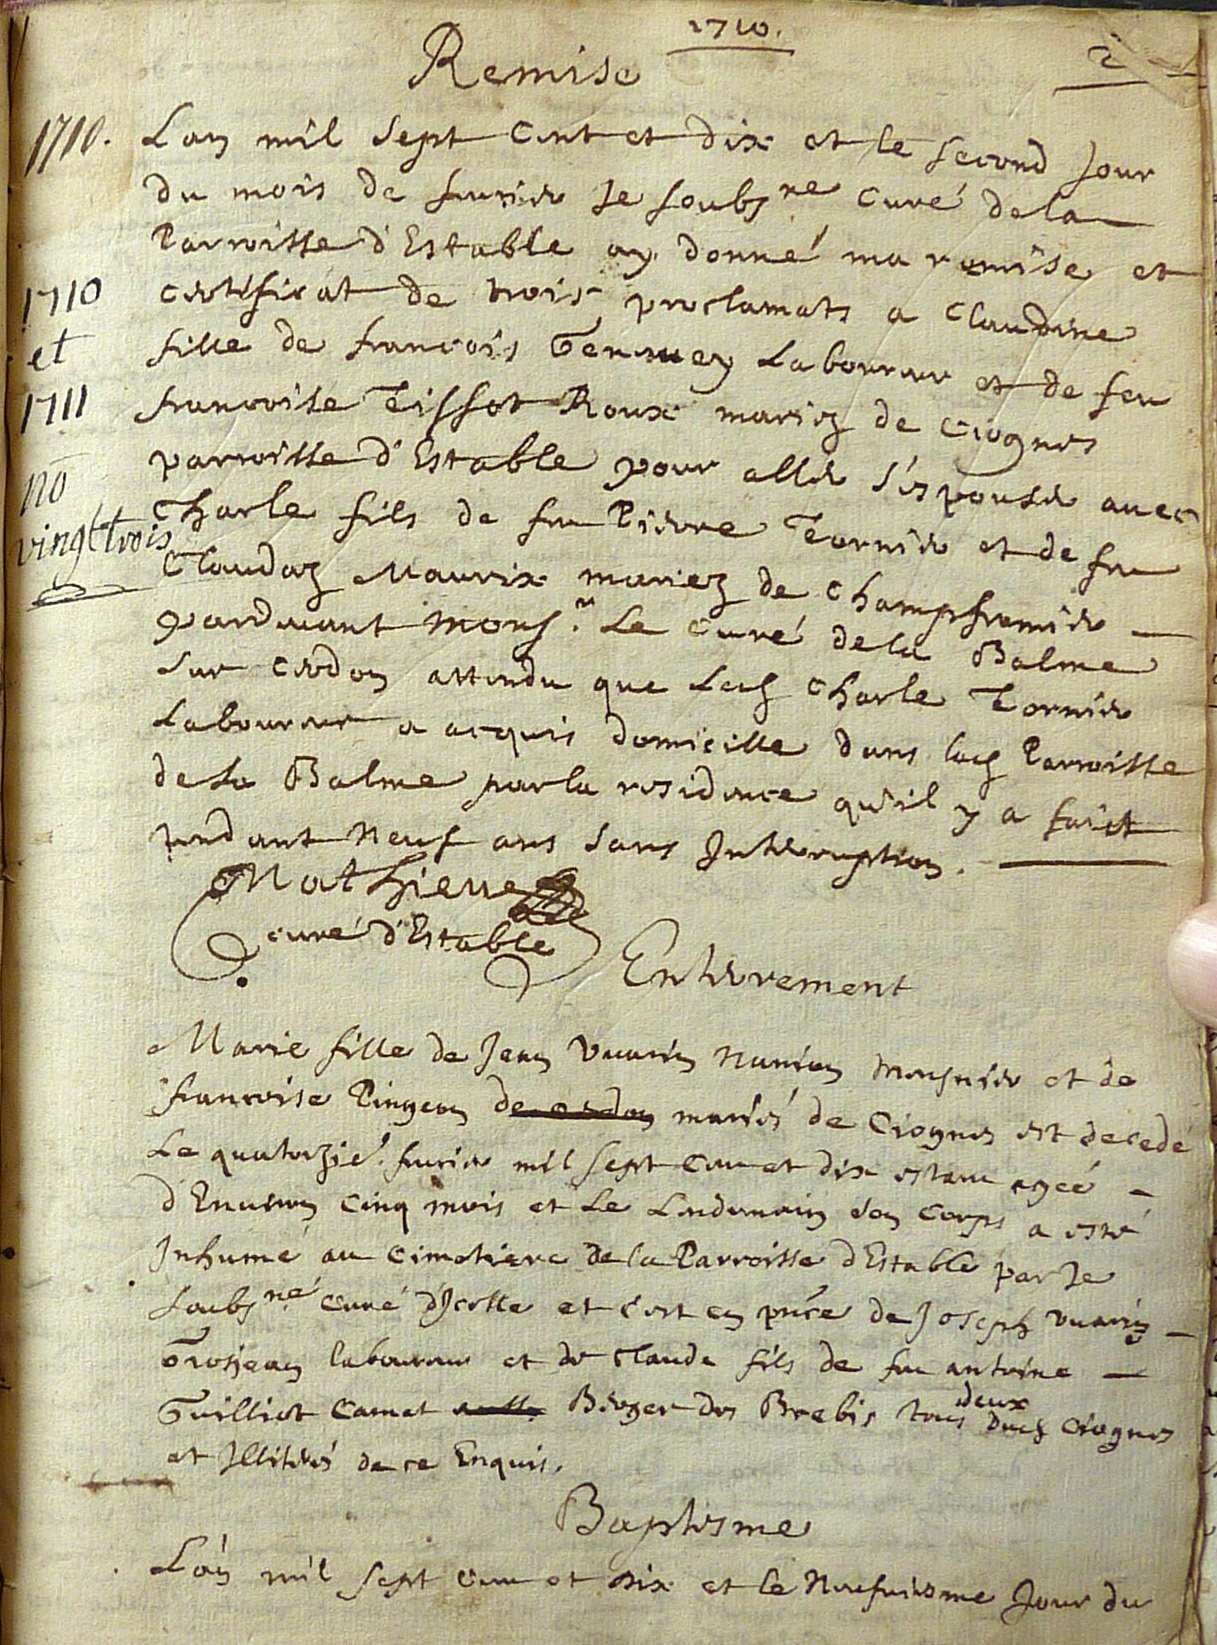 1710.
2
Remise
1710.
Lan mil sept cent et dix et le second Jour
du mois de feurier Je soubsne curé dela
Parroisse d'Estable ay donné ma remise et
certificat de trois proclamats a Claudine
fille de francois Genmey Laboureur et de feu
francoise Tissot Roux mariez de Ciognes
parroisse d'Estable pour aller s'espouser auec
Charle fils de feu Pierre Tornier et de feu
Claudaz Maurix mariez de Champfremier
parduant Monsr. Le curé dela Balme
sur Cerdon attendu que Led Charle Tornier
Laboureur a acquis domicille dans lad Parroisse
dela Balme parla residence qu'il y a faict
pendant neuf ans sans Interruption.
1710
et
1711
no
vingt trois
Mathieu
curé d'Estable
Enterrement
Marie fille de Jean Vuarin Musnier et de
francoise Pingeon de Cerdon mariés de Ciognes est decedé
Le quatorzie. feurier mil sept cent et dix estant agée
d'Enuiron cinq mois et Le Lendemain son corps a esté
Inhumé au cimetiere dela Parroisse d'Estable par Je
soubsné curé d'Jcelle et c'est en pnce de Joseph Vuarin
Grosjean laboureur et de Claude fils de feu antoine
Guilliot Camet Berger des Brebis tous deux dud Ciognes
et Illiterés de ce Enquis.
Baptisme
L'an mil sept cent et dix et le Neufuiesme Jour du